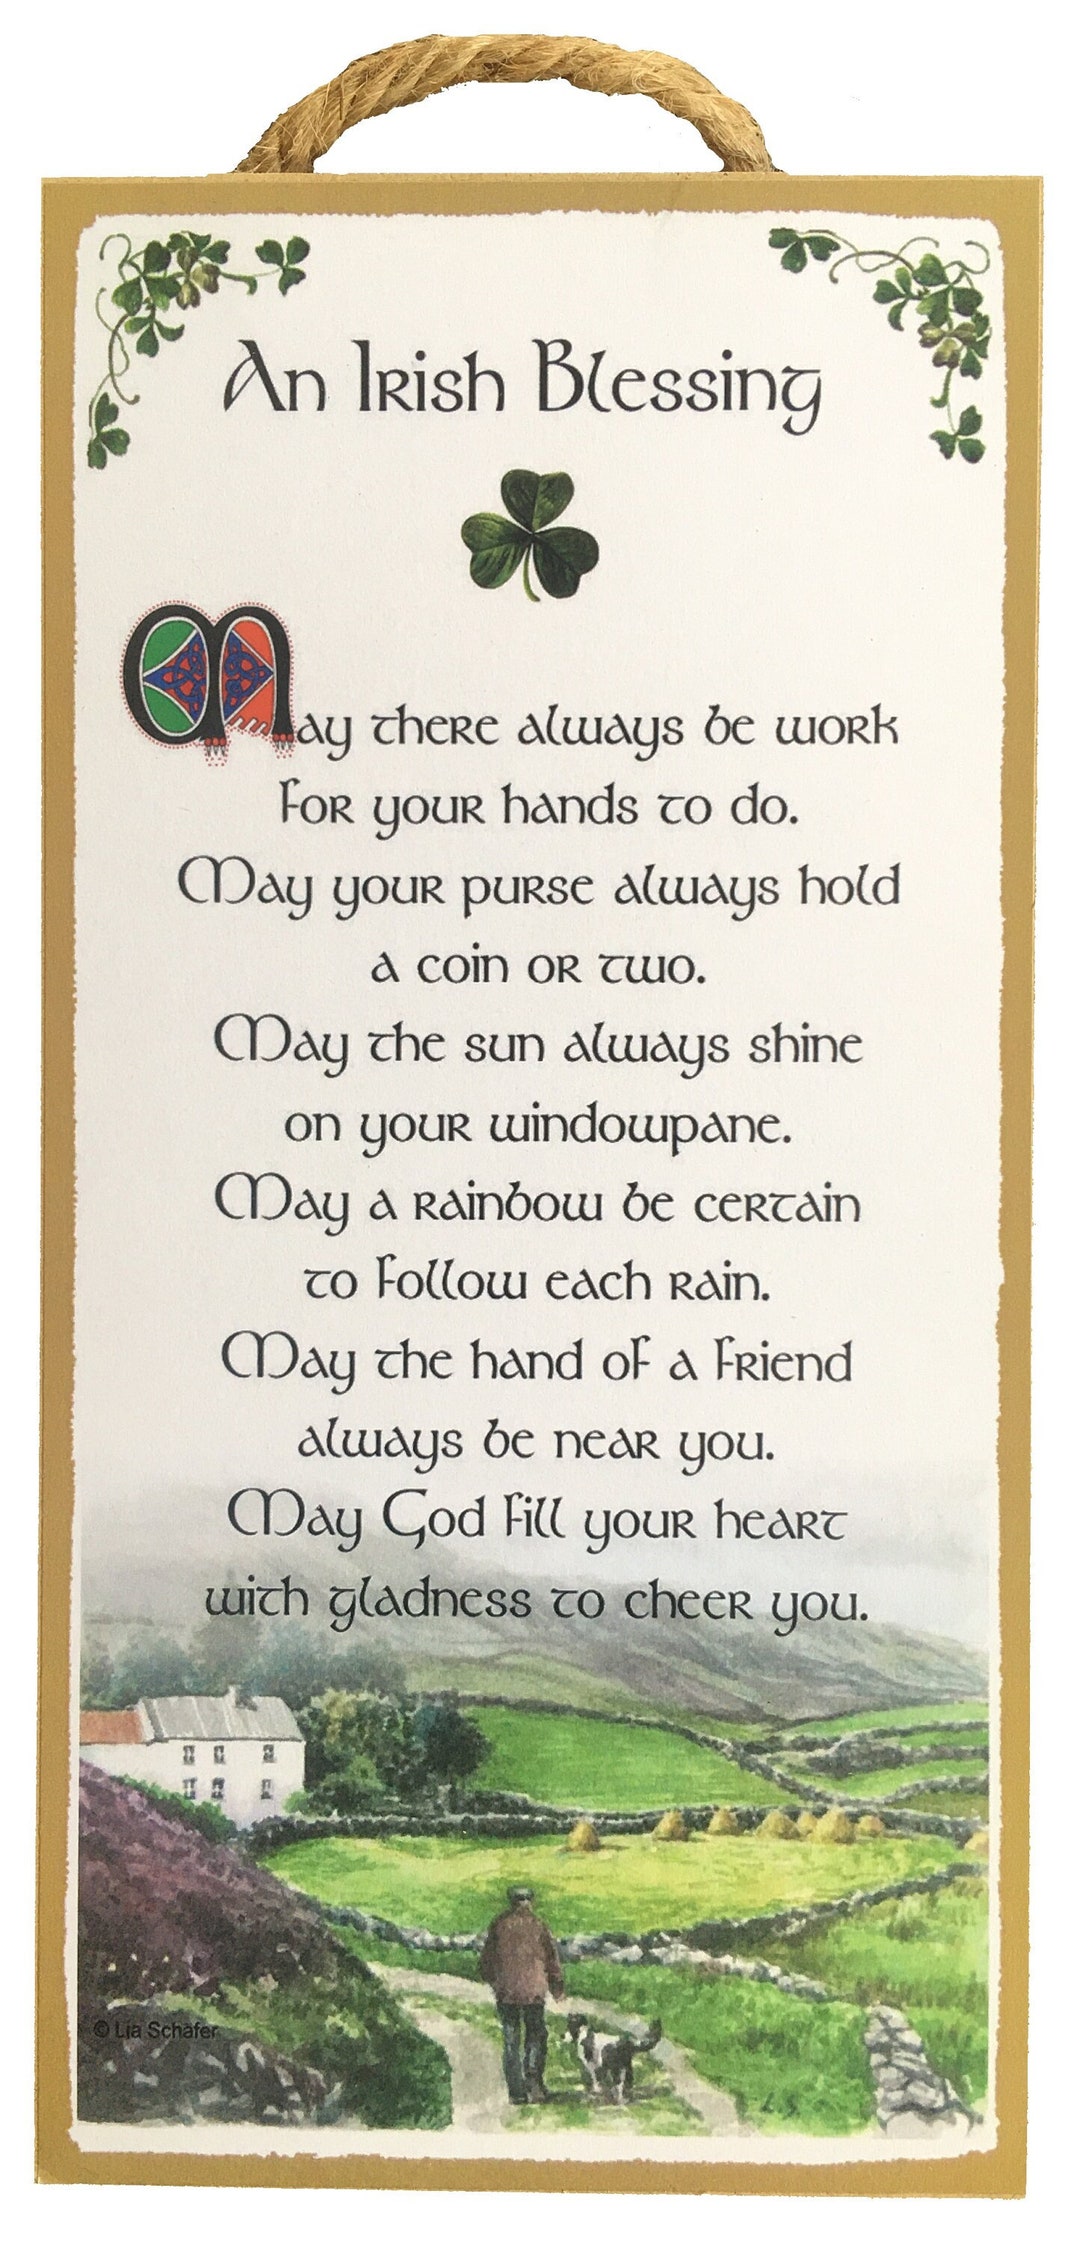 An Irish Blessing
May there always be work
for your hands to do.
May your purse always hold
a coin or two.
May the sun always shine
on your windowpane.
May a rainbow be certain
to follow each rain.
May the hand of a friend
always be near you.
May God fill your heart
with gladness to cheer you.
© Lia Schäfer
L.S.